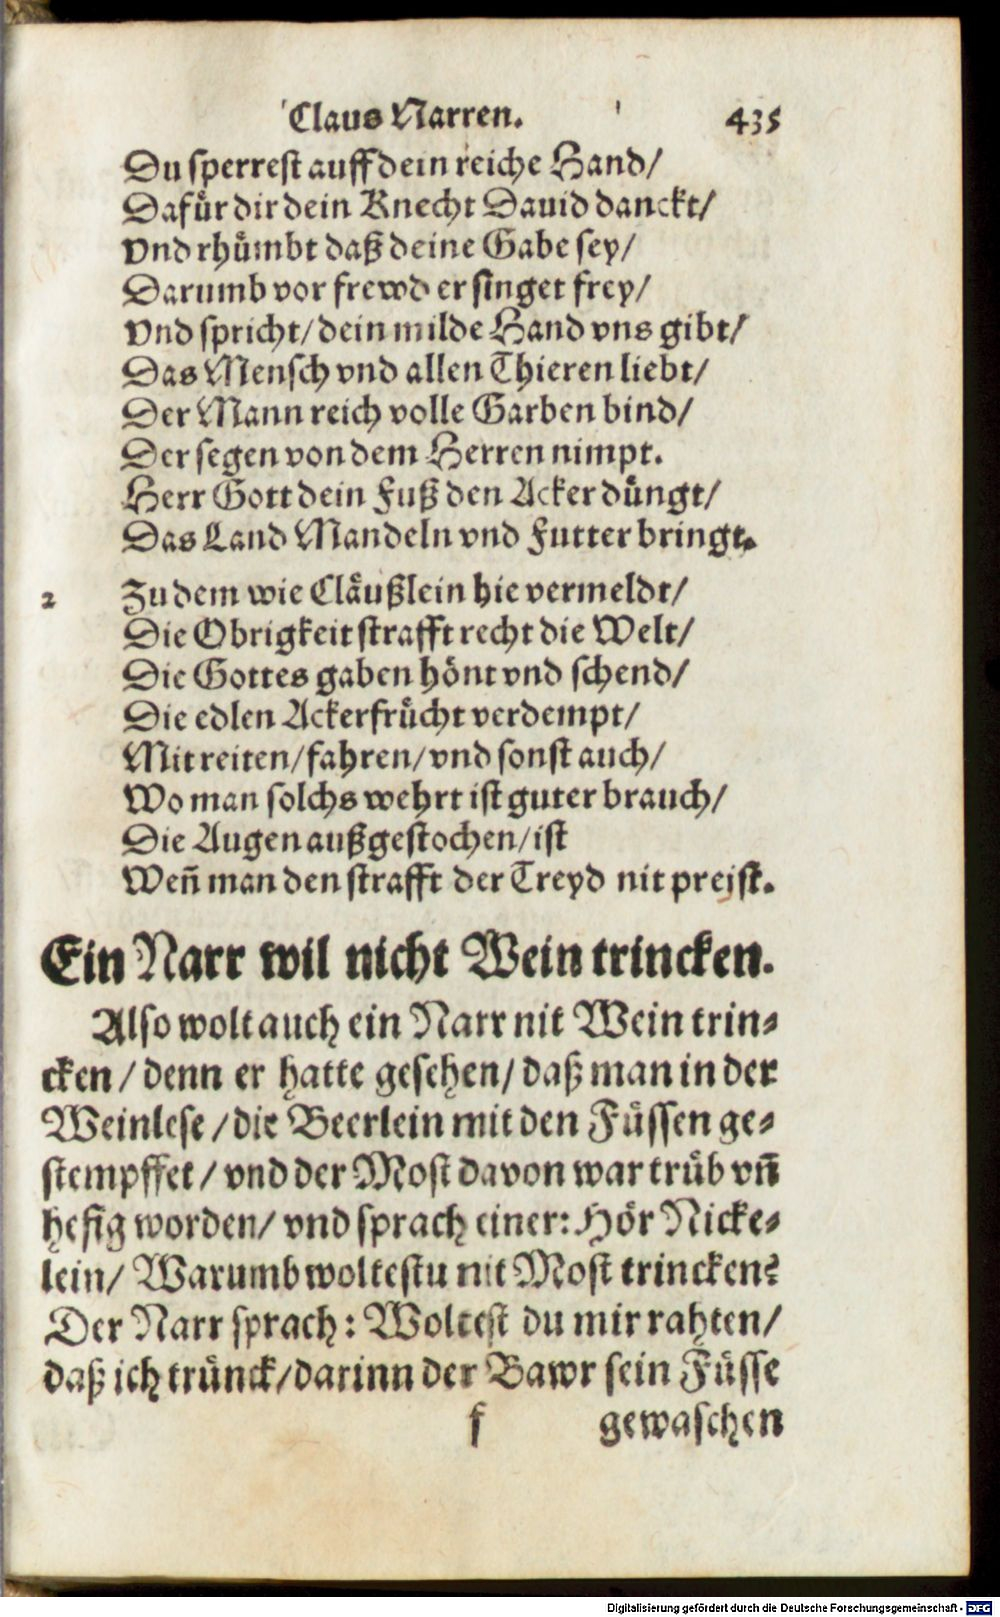 Claus Narren. 435
Du sperrest auff dein reiche Hand/
Dafür dir dein Knecht Dauid danckt/
Vnd rhümbt daß deine Gabe sey/
Darumb vor frewd er singet frey/
Vnd spricht/ dein milde Hand vns gibt/
Das Mensch vnd allen Thieren liebt/
Der Mann reich volle Garben bind/
Der segen von dem Herren nimpt.
Herr Gott dein Fuß den Acker düngt/
Das Land Mandeln vnd Futter bringt.
2 Zu dem wie Cläußlein hie vermeldt/
Die Obrigkeit strafft recht die Welt/
Die Gottes gaben hönt vnd schend/
Die edlen Ackerfrücht verdempt/
Mit reiten/ fahren/ vnd sonst auch/
Wo man solchs wehrt ist guter brauch/
Die Augen außgestochen/ ist
Weñ man den strafft der Treyd nit preist.
Ein Narr wil nicht Wein trincken.
Also wolt auch ein Narr nit Wein trin-
cken/ denn er hatte gesehen/ daß man in der
Weinlese/ die Beerlein mit den Füssen ge-
stempffet/ vnd der Most davon war trüb vñ
hefig worden/ vnd sprach einer: Hör Nicke-
lein/ Warumb woltestu nit Most trincken?
Der Narr sprach: Woltest du mir rahten/
daß ich trünck/ darinn der Bawr sein Füsse
f gewaschen
Digitalisierung gefördert durch die Deutsche Forschungsgemeinschaft - DFG